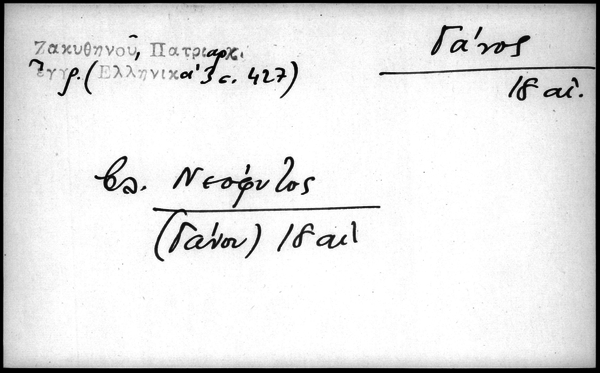 Ζακυθηνοῦ, Πατριαρχ.
ἔγγρ. (Ἑλληνικά 3 σ. 427)
Γάνος
18 αἰ.
βλ. Νεόφυτος
(Γάνου) 18 αἰ